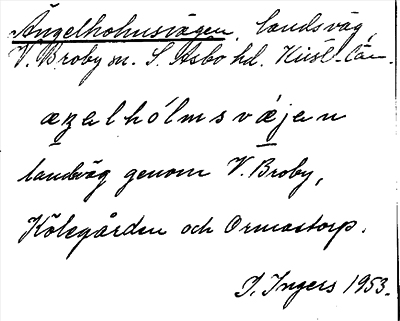 Ängelholmsvägen, landsväg,
V. Broby sn. S. Åsbo hd. Krist. län.
æŋəlhólmsvæjen
landsväg genom V. Broby,
Kölegården och Ormastorp.
I. Ingers 1953.